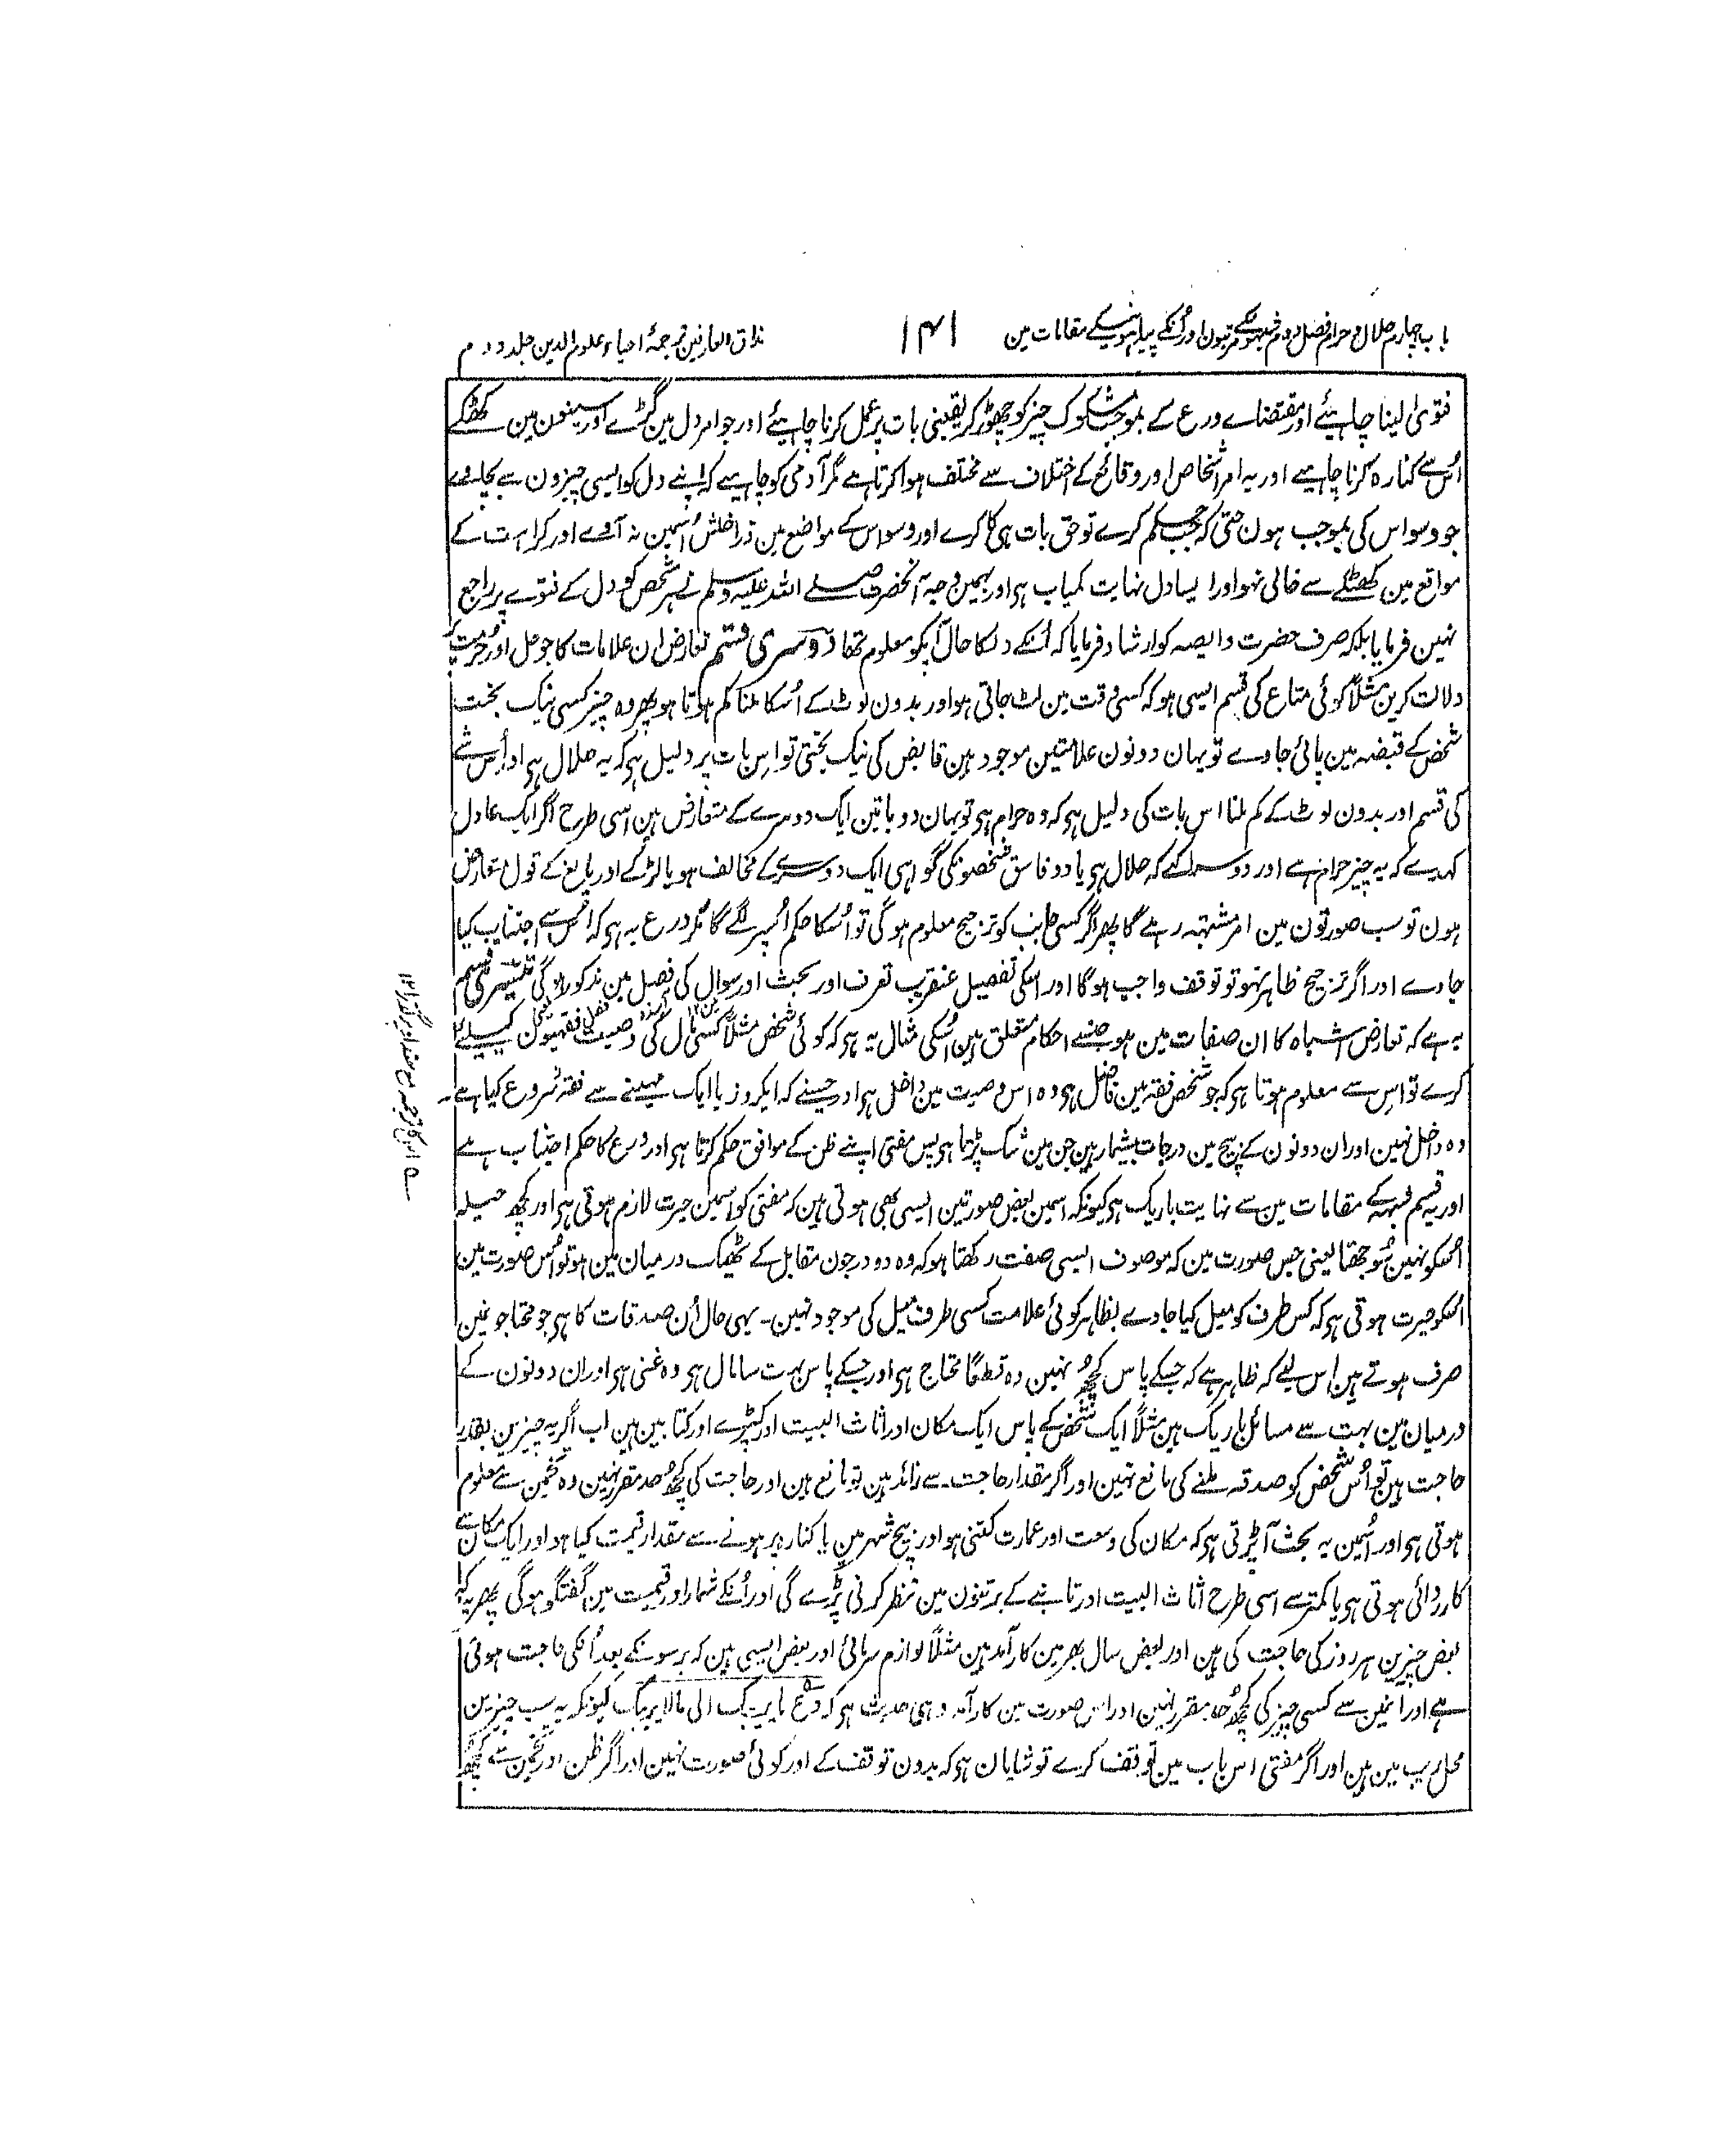 باب چہارم حلال و حرام فصل دوم شبہونکے مرتبون اور اُنکے پیدا ہونیکے مقامات مین
۱۴۱
مذاق العارفین ترجمۂ احیاء علوم الدین جلد دوم
فتویٰ لینا چاہیئے اور مقتضاے ورع کے بموجب مشکوک چیز کو چھوڑ کر یقینی بات پر عمل کرنا چاہیئے اور جو امر دل مین گڑے اور سینون مین کھٹکے
اُس سے کنارہ کرنا چاہیے اور یہ امر اشخاص اور وقائع کے اختلاف سے مختلف ہوا کرتا ہے مگر آدمی کو چاہیے کہ اپنے دل کو ایسی چیزون سے بچاوے
جو وسواس کی بموجب ہون حتی کہ جب حکم کرے تو حق بات ہی کا کرے اور وسواس کے مواضع مین ذرا خلش اُسمین نہ آوے اور کراہت کے
مواقع مین کھٹکے سے خالی نہو اور ایسا دل نہایت کمیاب ہی اور بہمین وجہ آنحضرت صلے اللہ علیہ وسلم نے ہر شخص کو دل کے فتوے پر راجع
نہین فرمایا بلکہ صرف حضرت وابصہ کو ارشاد فرمایا کہ اُنکے دلکا حال آپکو معلوم تھا دوسری قسم تعارض ان علامات کا جو حل اور حرمت پر
دلالت کرین مثلاً کوئی متاع کی قسم ایسی ہو کہ کسی وقت مین لٹ جاتی ہو اور بدون لوٹ کے اُسکا ملنا کم ہوتا ہو پھر وہ چیز کسی نیک بخت
شخص کے قبضہ مین پائی جاوے تو یہان دونون علامتین موجود ہین قابض کی نیک بختی تو اس بات پر دلیل ہو کہ یہ حلال ہی اور اُس شے
کی قسم اور بدون لوٹ کے کم ملنا اس بات کی دلیل ہو کہ وہ حرام ہی تو یہان دو باتین ایک دوسرے کے متعارض ہین اسی طرح اگر ایک عادل
کہدے کہ یہ چیز حرام ہے اور دوسرا کہے کہ حلال ہی یا دو فاسق شخصونکی گواہی ایک دوسرے کے مخالف ہو یا لڑکے اور بالغ کے قول متعارض
ہون تو سب صورتون مین امر مشتبہ رہے گا پھر اگر کسی جانب کو ترجیح معلوم ہو گی تو اُسکا حکم اُسپر لگے گا مگر ورع یہ ہی کہ اُس سے اجتناب کیا
جاوے اور اگر ترجیح ظاہر نہو تو توقف واجب ہوگا اور اسکی تفصیل عنقریب تعرف اور بحث اور سوال کی فصل مین مذکور ہوگی تیسری قسم
یہ ہے کہ تعارض اشباہ کا ان صفات مین ہو جنسے احکام متعلق ہین اُسکی مثال یہ ہی کہ کوئی شخص مثلاً کسی مال کی وصیت فقیہون کیلیے
کرے تو اس سے معلوم ہوتا ہی کہ جو شخص فقہ مین فاضل ہی وہ اس وصیت مین داخل ہی اور جسنے کہ ایکروز یا ایک مہینے سے فقہ شروع کیا ہے
وہ داخل نہین اور ان دونون کے بیچ مین درجات بیشمار ہین جن مین شک پڑتا ہی پس مفتی اپنے ظن کے موافق حکم کرتا ہی اور ورع کا حکم اجتناب ہے
اور یہ قسم شبہہ کے مقامات مین سے نہایت باریک ہی کیونکہ اسمین بعض صورتین ایسی بھی ہوتی ہین کہ مفتی کو اسمین حیرت لازم ہوتی ہی اور کچھ حیلہ
اُسکو نہین سُوجھتا یعنی جس صورت مین کہ موصوف ایسی صفت رکھتا ہو کہ وہ دو درجون مقابل کے ٹھیک درمیان مین ہو تو اُس صورت مین
اُسکو حیرت ہوتی ہی کہ کس طرف کو میل کیا جاوے بظاہر کوئی علامت کسی طرف میل کی موجود نہین۔ یہی حال اُن صدقات کا ہی جو محتاجو نمین
صرف ہوتے ہین اس لیے کہ ظاہر ہے کہ جسکے پاس کچھ نہین وہ قطعًا محتاج ہی اور جسکے پاس بہت سا مال ہی وہ غنی ہی اور ان دونون کے
درمیان مین بہت سے مسائل باریک ہین مثلاً ایک شخص کے پاس ایک مکان اور اثاث البیت اور کپڑے اور کتابین ہین اب اگر یہ چیزین بقدر
حاجت ہین تو اُس شخص کو صدقہ ملنے کی مانع نہین اور اگر مقدار حاجت سے زائد ہین تو مانع ہین اور حاجت کی کچھ حد مقرر نہین وہ تخمین سے معلوم
ہوتی ہی اور اُسمین یہ بحث آپڑتی ہی کہ مکان کی وسعت اور عمارت کتنی ہو اور بیچ شہر مین یا کنارہ پر ہونے سے مقدار قیمت کیا ہو اور ایک مکان سے
کارروائی ہوتی ہی یا کمتر سے اسی طرح اثاث البیت اور تانبے کے برتنون مین نظر کرنی پڑے گی اور اُنکے شمار اور قیمت مین گفتگو ہوگی پھر یہ کہ
بعض چیزین ہر روز کی حاجت کی ہین اور بعض سال بھر مین کارآمد ہین مثلاً لوازم سرمائی اور بعض ایسی ہین کہ برسونکے بعد اُنکی حاجت ہوتی
ہے اور انمین سے کسی چیز کی کچھ حد مقرر نہین اور اس صورت مین کارآمد وہی حدیث ہی کہ دع ما یریبک الی مالا یریبک کیونکہ یہ سب چیزین
محل ریب مین ہین اور اگر مفتی اس باب مین توقف کرے تو شایان ہی کہ بدون توقف کے اور کوئی صورت نہین اور اگر ظن اور تخمین سے کچھ
اس کا ترجمہ مع سند اوپر گذرا ۱۲